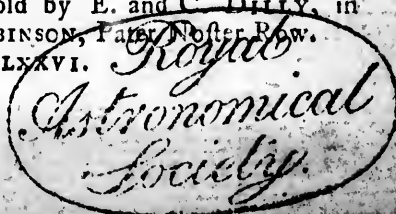 old by E. and C. DILLY, in
BINSON, Pater Noſter Row.
LXXVI.
Royal
Astronomical
Society.